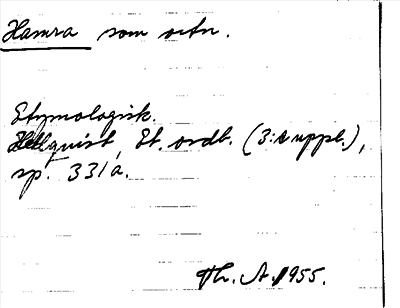 Hamra som ortn.
Etymologisk.
Hellquist, Et. ordb. (3:e uppl.),
sp. 331 a.
Th. A. 1955.